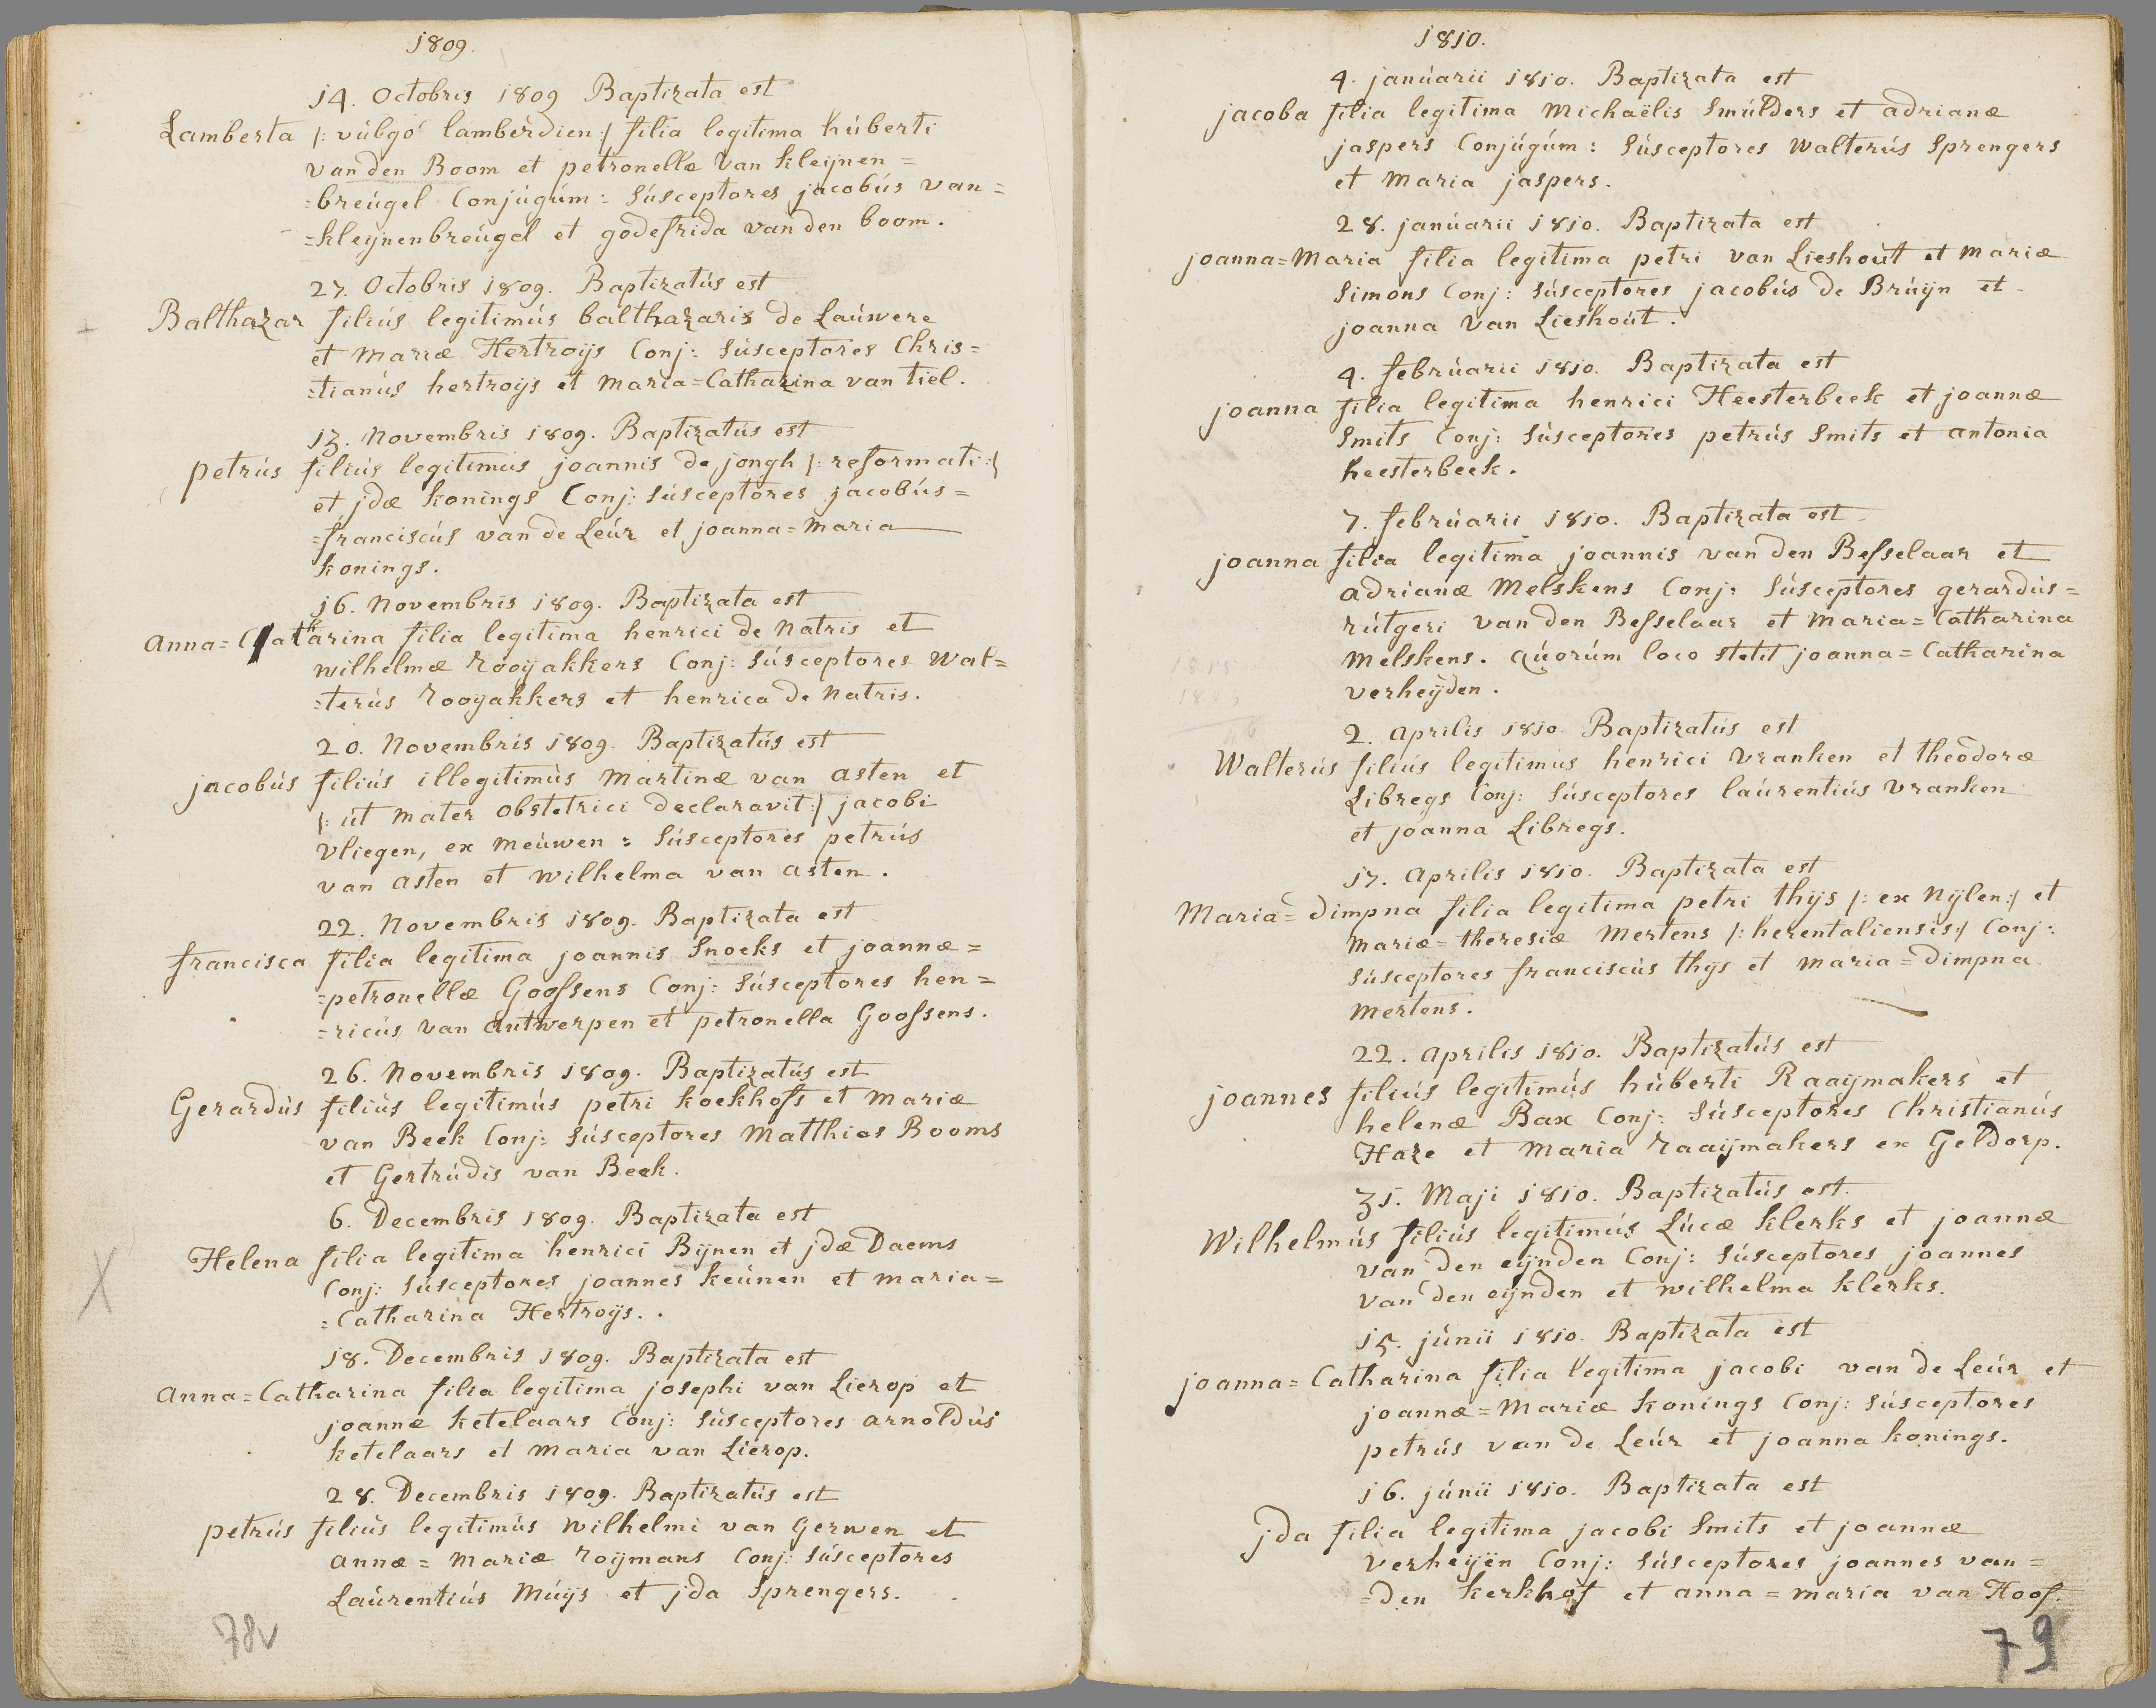 1809.
14. Octobris 1809 Baptizata est
Lamberta /: vúlgó lamberdien:/ filia legitima húberti
van den Boom et petronellæ van kleijnen=
=breúgel Conjúgúm: Súsceptores jacobús van=
=kleijnenbreúgel et godefrida van den boom.
27. Octobris 1809. Baptizatús est
Balthazar filiús legitimús balthazaris de Laúwere
et Mariæ Hertroijs Conj: Súsceptores Chris=
=tianús hertroijs et Maria=Catharina van tiel.
13. Novembris 1809. Baptizatús est
petrús filiús legitimús joannis de jongh /: reformati:/
et jdæ konings Conj: Súsceptores jacobús=
=franciscús van de Leúr et joanna=Maria
konings.
16. Novembris 1809. Baptizata est
Anna=Catharina filia legitima henrici de Natris et
wilhelmæ Rooijakkers Conj: Súsceptores Wal=
=terús Rooijakkers et henrica de Natris.
20. Novembris 1809. Baptizatús est
jacobús filiús illegitimús Martinæ van asten et
/: út Mater obstetrici declaravit:/ jacobi
vliegen, ex Meúwen: Súsceptores petrús
van asten et wilhelma van asten.
22. Novembris 1809. Baptizata est
francisca filia legitima joannis Snoeks et joannæ=
=petronellæ Goossens Conj: Súsceptores hen=
=ricús van antwerpen et petronella Goossens.
26. Novembris 1809. Baptizatús est
Gerardús filiús legitimús petri koekhofs et Mariæ
van Beek Conj: Súsceptores Matthias Booms
et Gertrúdis van Beek.
6. Decembris 1809. Baptizata est
Helena filia legitima henrici Bijnen et jdæ Daems
Conj: Súsceptores joannes keúnen et maria=
=Catharina Hertroijs.
18. Decembris 1809. Baptizata est
Anna=Catharina filia legitima josephi van Lierop et
joannæ ketelaars Conj: Súsceptores arnoldús
ketelaars et maria van Lierop.
28. Decembris 1809. Baptizatús est
petrús filiús legitimús Wilhelmi van Gerwen et
annæ=Mariæ Roijmans Conj: Súsceptores
Laúrentiús Múijs et jda Sprengers.
78v
1810.
4. janúarii 1810. Baptizata est
jacoba filia legitima Michaëlis Smúlders et adrianæ
jaspers Conjúgúm: Súsceptores Walterús Sprengers
et Maria jaspers.
28. janúarii 1810. Baptizata est
joanna=Maria filia legitima petri van Lieshoút et Mariæ
Simons Conj: Súsceptores jacobús de Brúijn et
joanna van Lieshoút.
4. febrúarii 1810. Baptizata est
joanna filia legitima henrici Heesterbeek et joannæ
Smits Conj: Súsceptores petrús Smits et antonia
heesterbeek.
7. febrúarii 1810. Baptizata est
joanna filia legitima joannis van den Besselaar et
adrianæ Melskens Conj: Súsceptores gerardús=
rútgeri van den Besselaar et Maria=Catharina
Melskens. qúorúm loco stetit joanna=Catharina
verheijden.
2. aprilis 1810. Baptizatús est
Walterús filiús legitimús henrici Vranken et theodoræ
Libregs Conj: Súsceptores laúrentiús Vranken
et joanna Libregs.
17. aprilis 1810. Baptizata est
Maria=dimpna filia legitima petri thijs /: ex Nijlen:/ et
Mariæ=theresiæ Mertens /: herentaliensis:/ Conj:
Súsceptores franciscús thijs et Maria=dimpna
Mertens.
22. aprilis 1810. Baptizatús est
joannes filiús legitimús húberti Raaijmakers et
helenæ Bax Conj: Súsceptores Christianús
Haze et Maria Raaijmakers ex Geldorp.
31. Maji 1810. Baptizatús est
Wilhelmús filiús legitimús Lúcæ klerks et joannæ
van den eijnden Conj: Súsceptores joannes
van den eijnden et wilhelma klerks.
15. júnii 1810. Baptizata est
joanna=Catharina filia legitima jacobi van de Leúr et
joannæ=Mariæ konings Conj: Súsceptores
petrús van de Leúr et joanna konings.
16. júnii 1810. Baptizata est
jda filia legitima jacobi Smits et joannæ
verheijen Conj: Súsceptores joannes van=
=den kerkhof et anna=maria van Hoof.
79